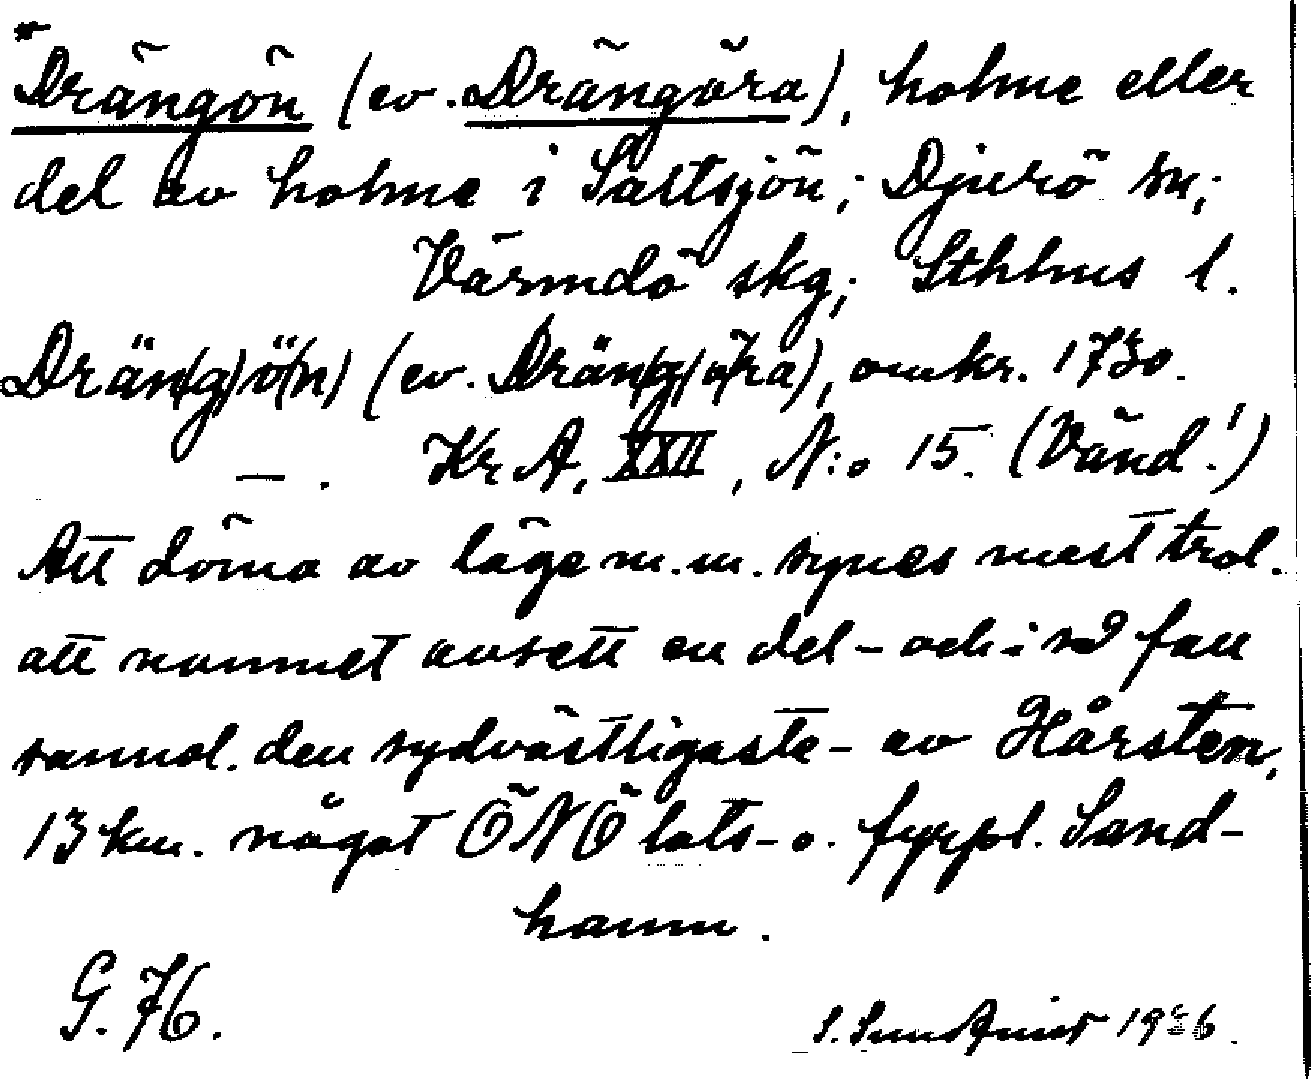 *Drängön (ev. Drängöra), holme eller
del av holme i Saltsjön; Djurö sn;
Värmdö skg; Sthlms l.
Drän(g)ö(n) (ev. Drän(g)öra), omkr. 1730.
— . Kr A, XXII, N:o 15. (Vänd!)
Att döma av läge m.m. synes mest trol.
att namnet avsett en del - och i så fall
sannol. den sydvästligaste - av Hårsten,
13 km. något ÖNÖ lots- o. fyrpl. Sand-
hamn.
G. 76.
S. Sundquist 1936.